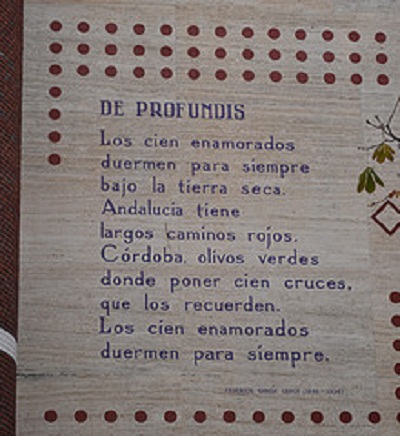 DE PROFUNDIS
Los cien enamorados
duermen para siempre
bajo la tierra seca.
Andalucía tiene
largos caminos rojos.
Córdoba, olivos verdes
donde poner cien cruces,
que los recuerden.
Los cien enamorados
duermen para siempre.